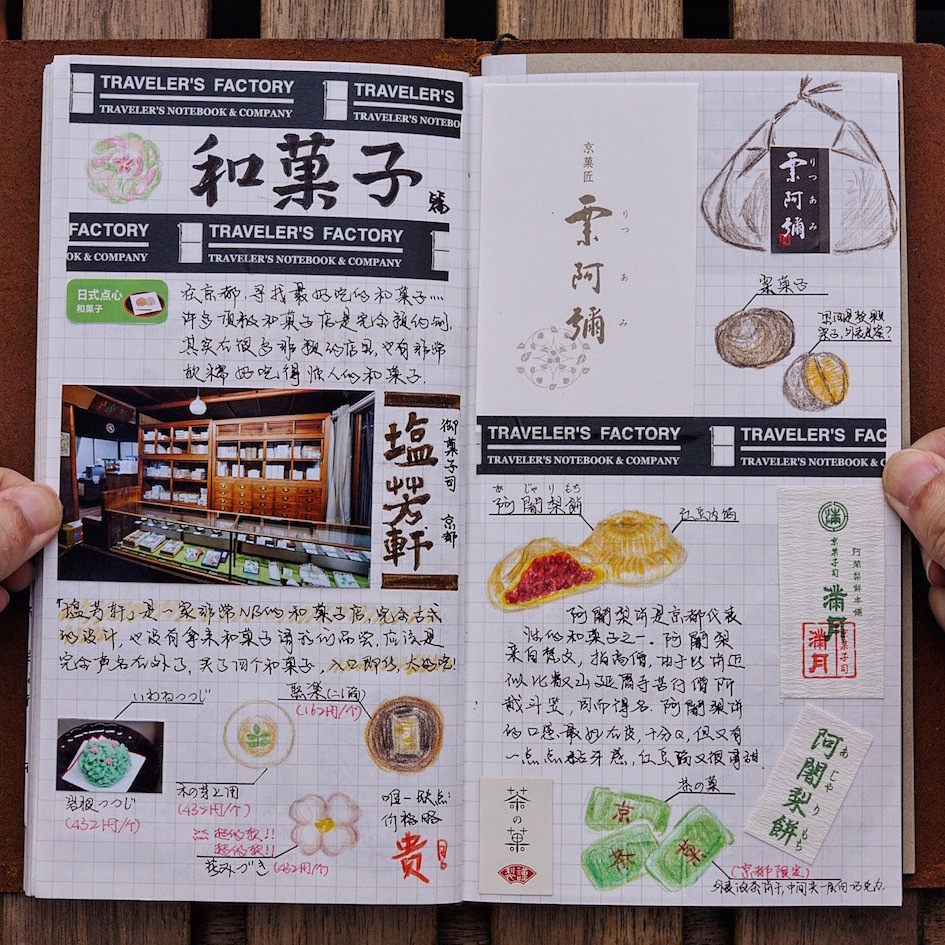 TRAVELER'S FACTORY
TRAVELER'S NOTEBOOK & COMPANY
TRAVELER'S
TRAVELER'S NOTEBO
和菓子
篇
FACTORY
OK & COMPANY
TRAVELER'S FACTORY
TRAVELER'S NOTEBOOK & COMPANY
日式点心
和菓子
在京都,寻找最好吃的和菓子....
许多顶级和菓子店是完全预约制,
其实在很多非预约的店里,也有非常
好吃得惊人的和菓子.
御菓子司 京都
塩芳軒
「塩芳軒」是一家非常NB的和菓子店,完全古式
的设计,也没有拿来和菓子请求的品尝,应该是
完全声名在外了,买了四个和菓子,入口即化,太好吃!
いわねつつじ
岩根つつじ
(432円/个)
木の芽と月
(432円/个)
超级软!!
聚楽(こし筒)
(162円/个)
花みづき(432円/个)
唯一缺点:
价格略
贵
京菓匠
栗阿彌
りつあみ
栗阿彌
りつあみ
栗菓子
里面是整颗
栗子,外表是蜜?
TRAVELER'S FACTORY
TRAVELER'S NOTEBOOK & COMPANY
TRAVELER'S FAC
TRAVELER'S NOTEBOOK & CO
あじゃりもち
阿闍梨餅
红豆内馅
阿闍梨饼是京都代表
性的和菓子之一.阿闍梨
来自梵文,指高僧,由于此饼近
似比叡山延曆寺苦行僧所
戴斗笠,因而得名.阿闍梨饼
的口感最妙在皮,十分Q,但又有
一点点黏牙感,红豆馅又很清甜.
満
阿闍梨餅本舗
京菓子司
満月
満月
菓子司
阿闍梨餅
あじゃりもち
茶の菓
謹製
茶の菓
京
茶
菓
(京都限定)
外表淡茶饼干,中间夹一层白巧克力.